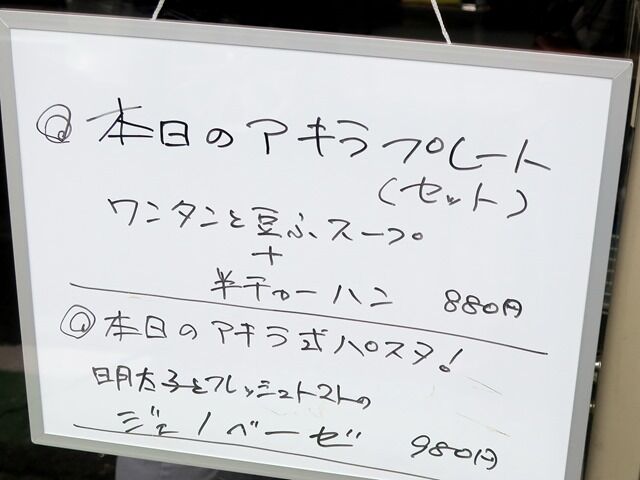 ◎本日のアキラプレート
(セット)
ワンタンと豆ふスープ
+
半チャーハン 880円
◎本日のアキラ式パスタ!
明太子とフレッシュトマトの
ジェノベーゼ 980円